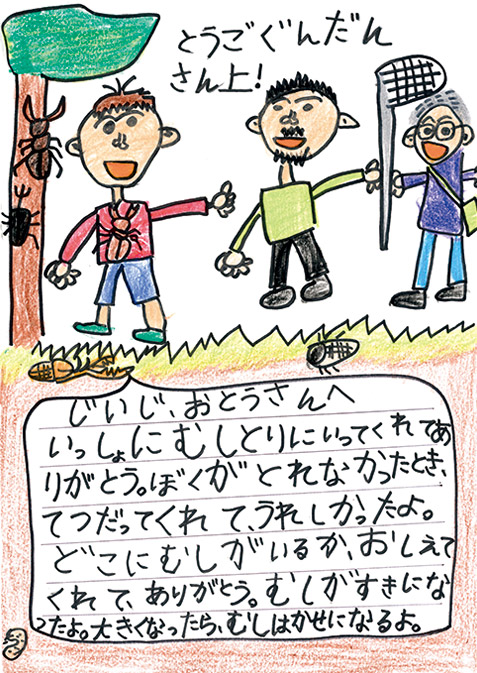 とうごぐんだん
さん上!
じいじ、おとうさんへ
いっしょにむしとりにいってくれてあ
りがとう。ぼくがとれなかったとき、
てつだってくれて、うれしかったよ。
どこにむしがいるか、おしえて
くれて、ありがとう。むしがすきにな
ったよ。大きくなったら、むしはかせになるよ。